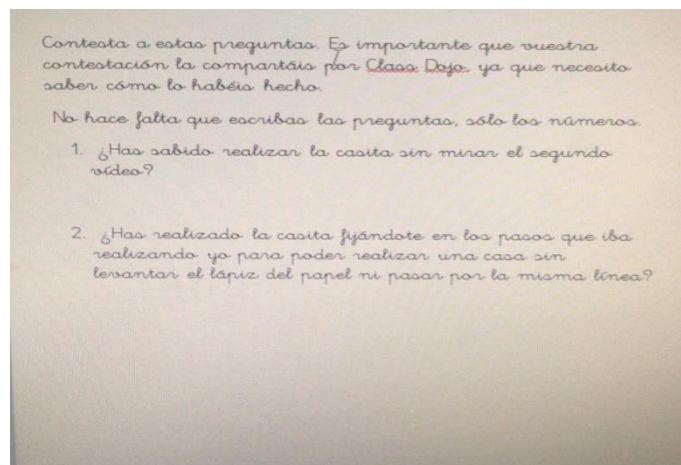 Contesta a estas preguntas. Es importante que vuestra
contestación la compartáis por Class Dojo, ya que necesito
saber cómo lo habéis hecho.
No hace falta que escribas las preguntas, sólo los números.
1. ¿Has sabido realizar la casita sin mirar el segundo
vídeo?
2. ¿Has realizado la casita fijándote en los pasos que iba
realizando yo para poder realizar una casa sin
levantar el lápiz del papel ni pasar por la misma línea?